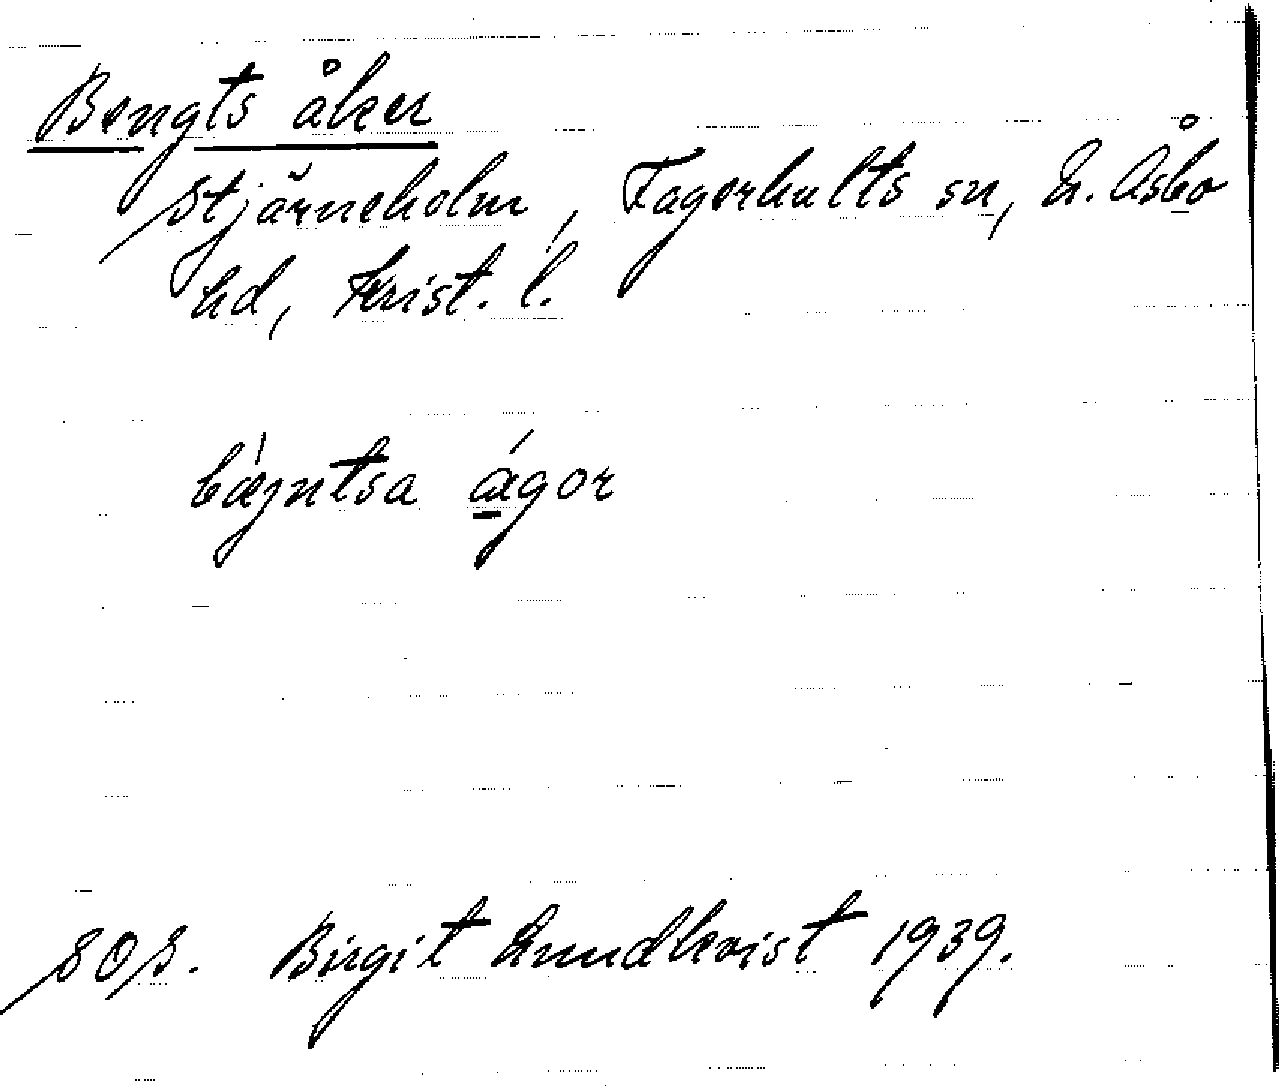 Bengts åker
Stjärneholm, Fagerhults sn, N. Åsbo
hd, Krist. l.
bæ̍jntsa a̲̍gor
SOS. Birgit Lundkvist 1939.